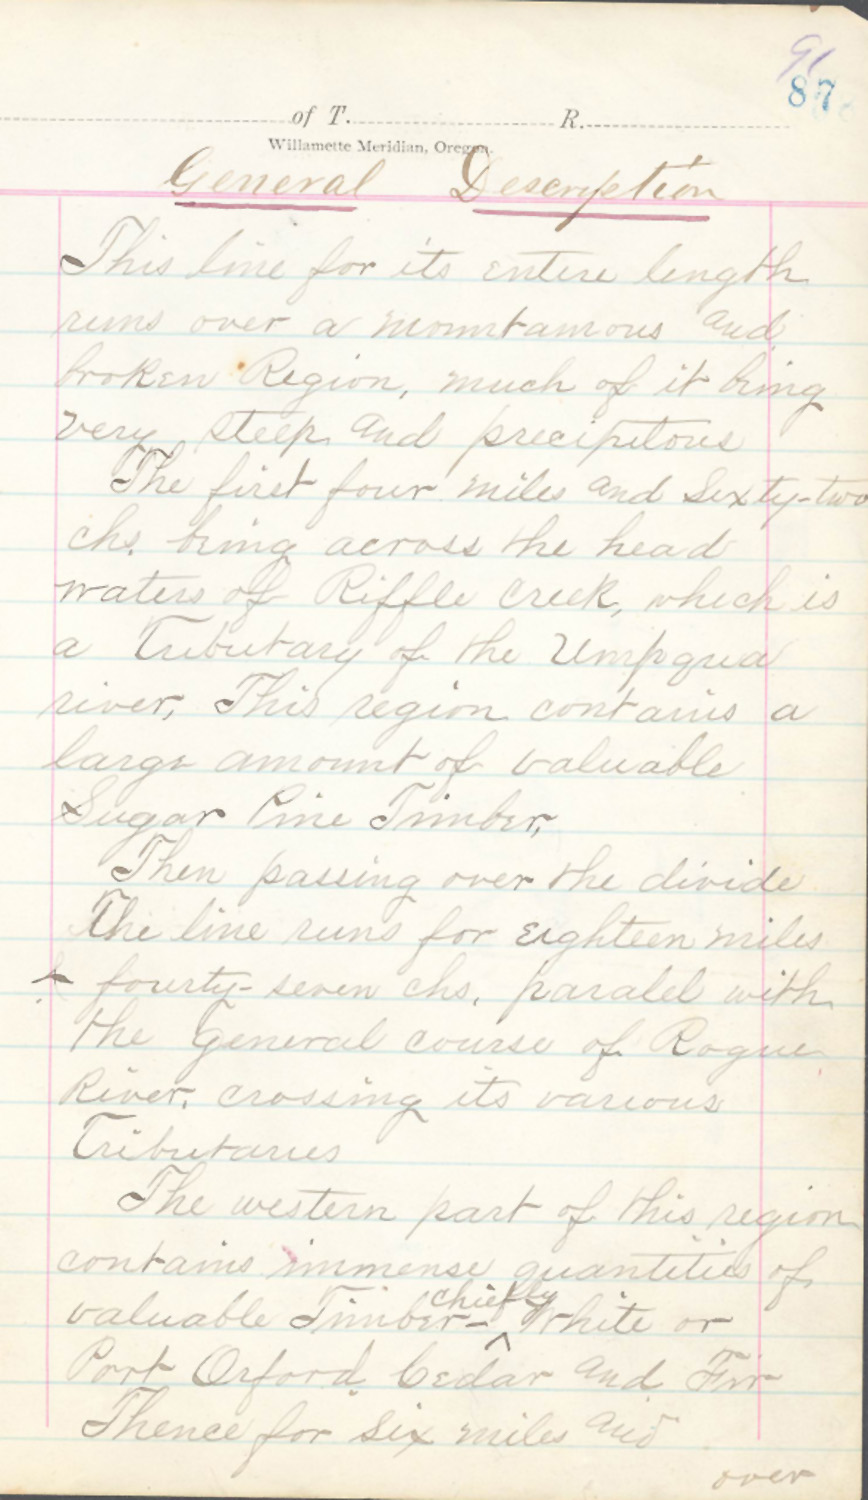 91
87
of T. R.
Willamette Meridian, Oregon.
General Description
This line for its entire length
runs over a mountainous and
broken Region, much of it being
very steep and precipitous
The first four miles and Sixty-two
chs. being across the head
waters of Riffle Creek, which is
a Tributary of the Umpqua
river, This region contains a
large amount of valuable
Sugar Pine Timber,
Then passing over the divide
The line runs for eighteen miles
& fourty-seven chs, paralel with
the General course of Rogue
River, crossing its various
Tributaries
The western part of this region
contains immense quantities of
valuable Timber- chiefly White or
Port Orford Cedar and Fir
Thence for six miles and
over